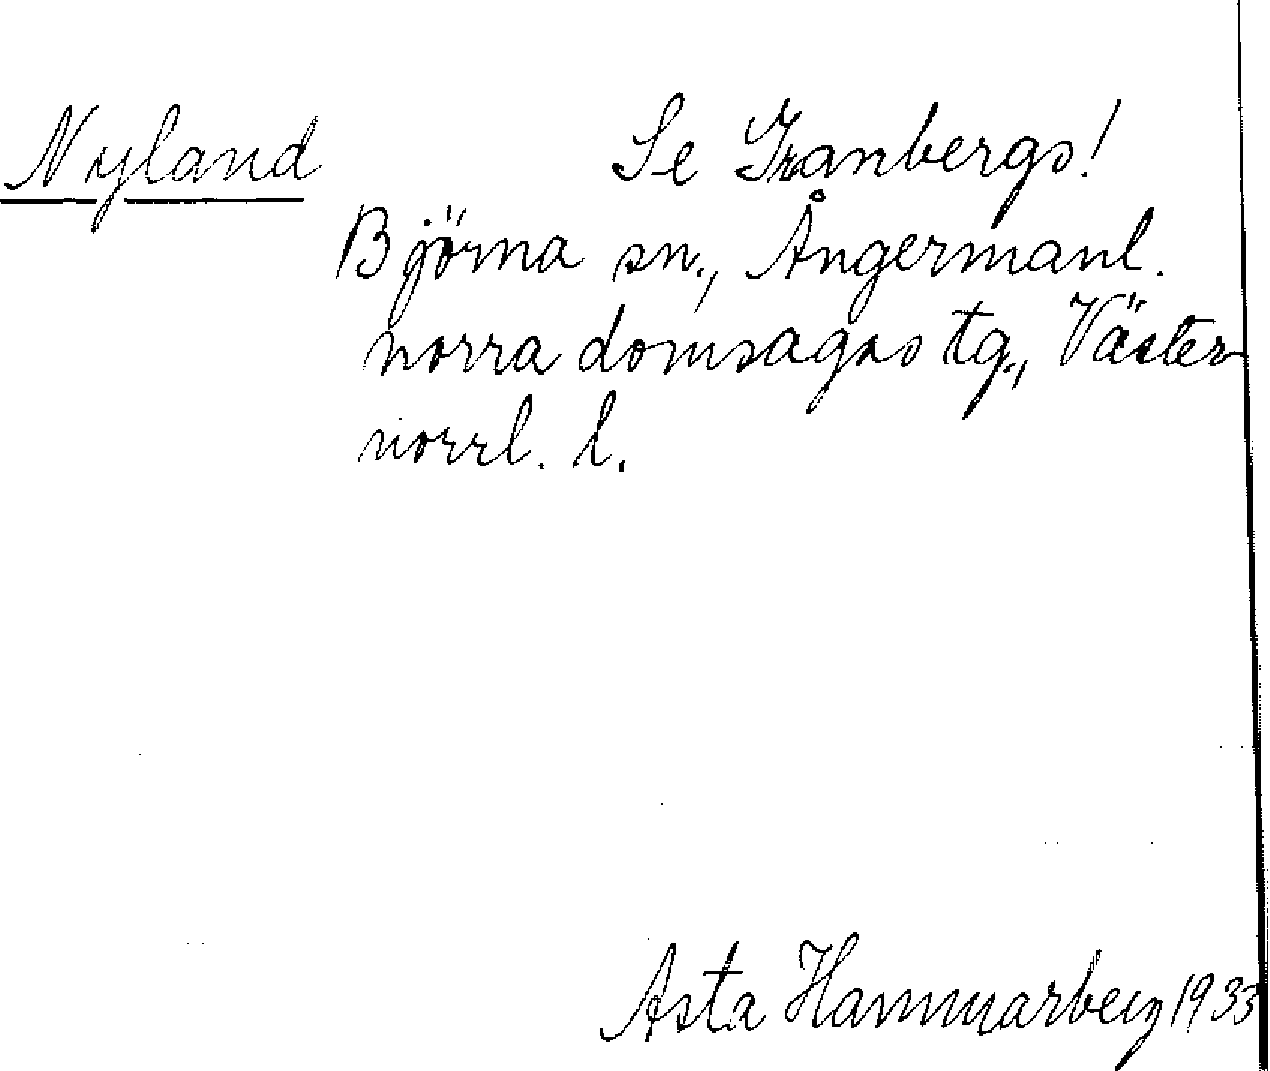 Nyland Se Granbergs!
Björna sn., Ångermanl.
norra domsagas tg., Väster
norrl. l.
Asta Hammarberg 1933